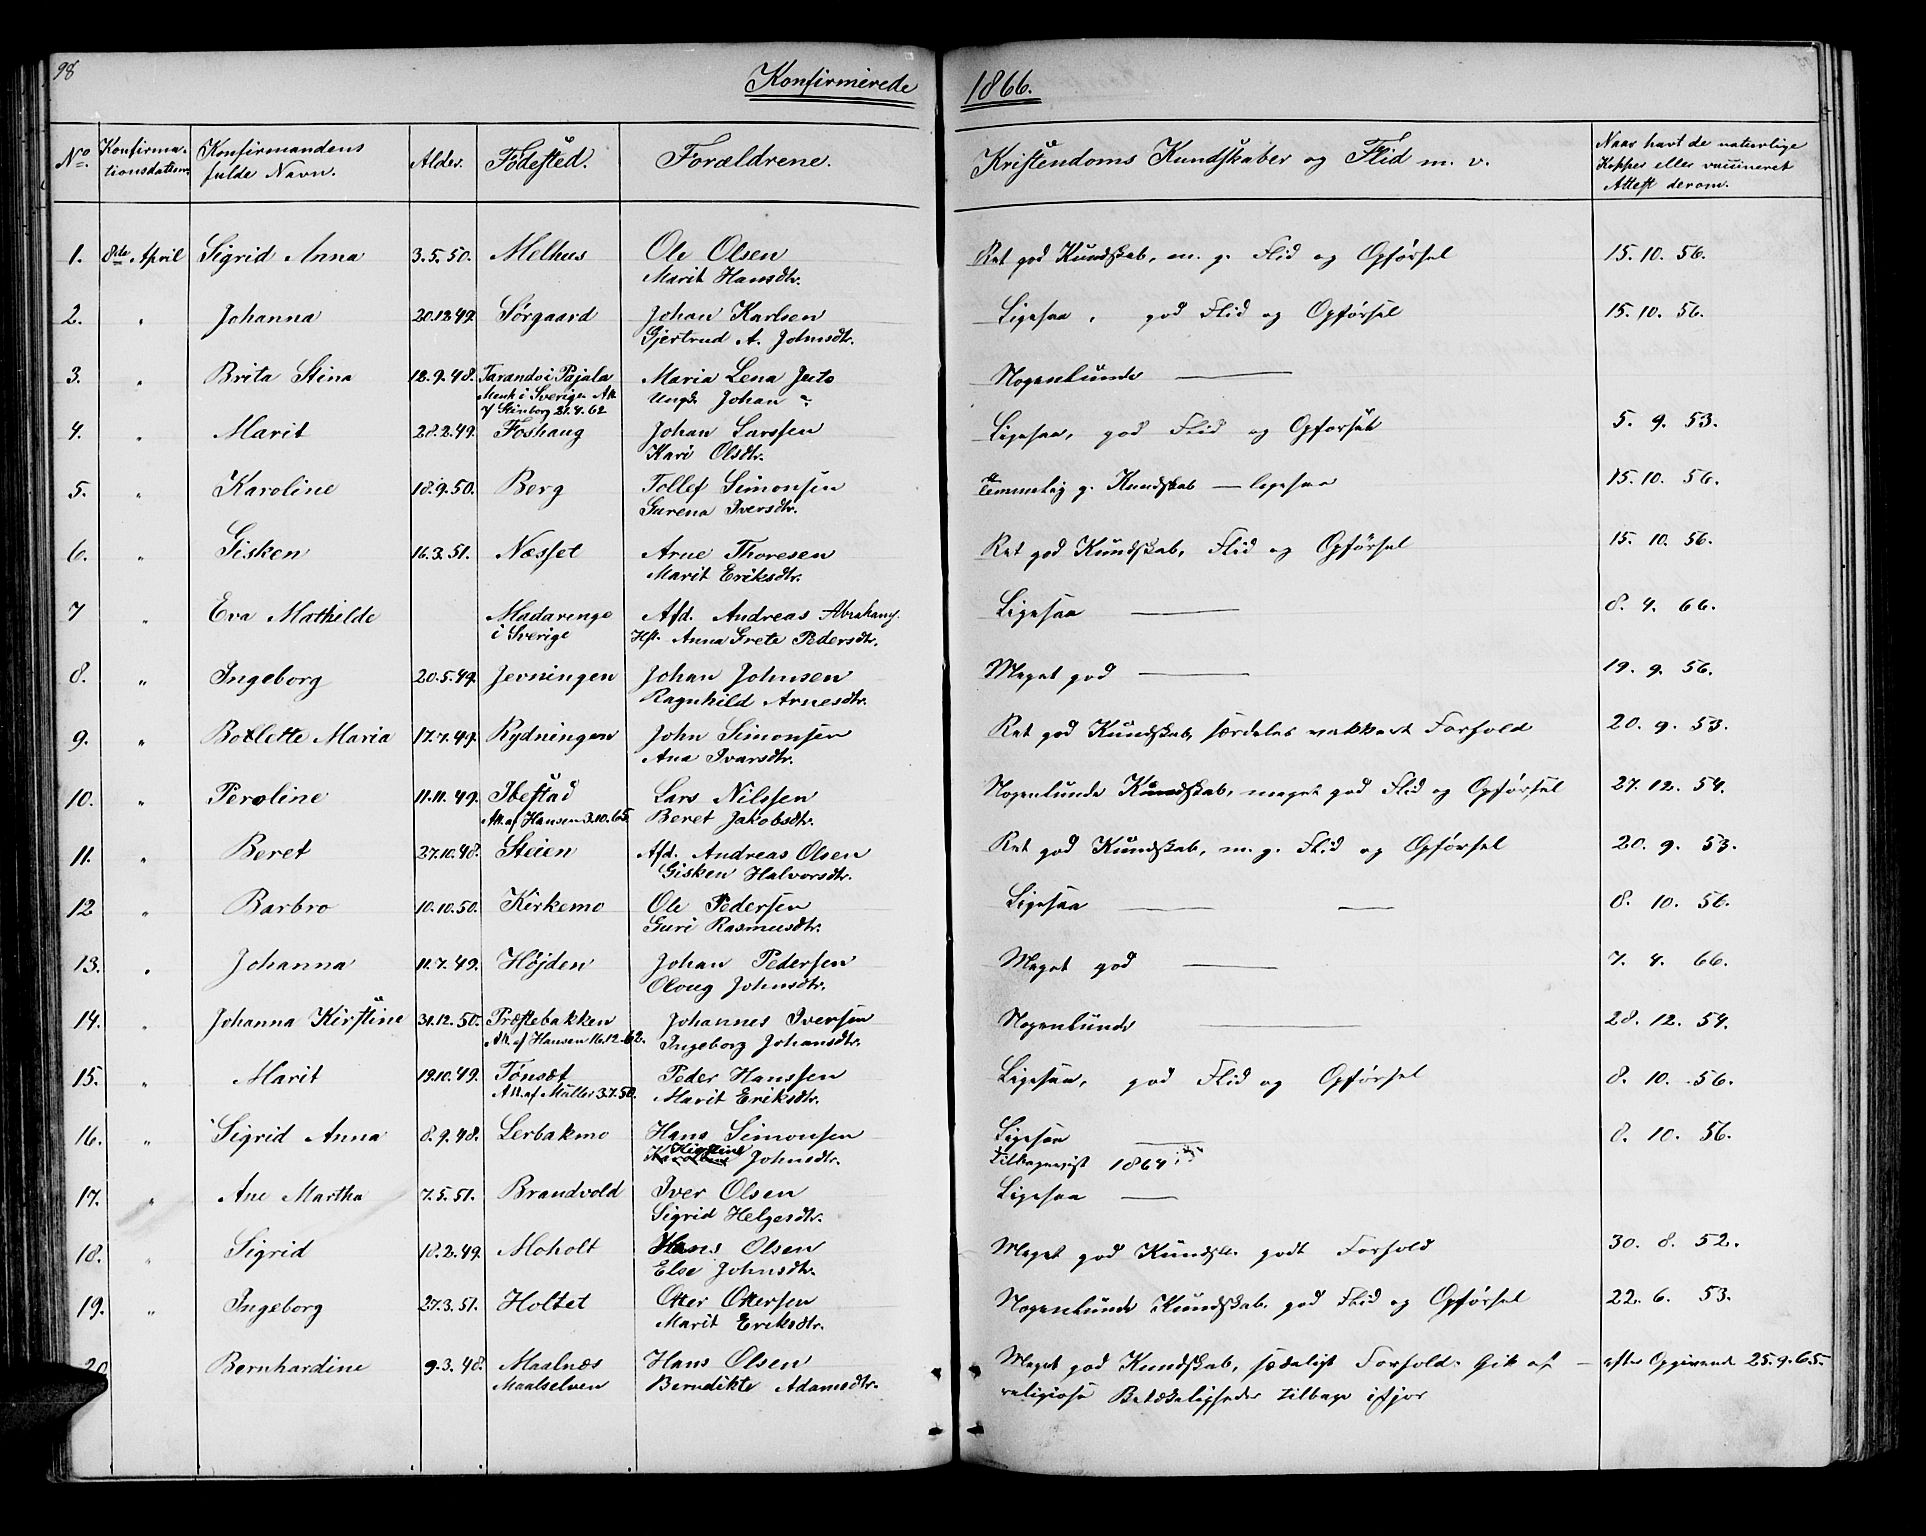 98
Konfirmerede 1866.
No. Konfirma-tionsdatum Konfirmandens fulde Navn. Alder. Födested. Forældrene. Kristendoms Kundskaber og Flid m. v. Naar havt de naturlige Kopper eller vaccineret Attest derom.
1. 8de April Sigrid Anna 3.5.50. Melhus Ole Olsen Ret god Kundskab, m. g. Flid og Opførsel 15. 10. 56.
Marit Hansdtr.
2. " Johanna 20.12.49. Sørgaard Johan Karlsen Ligesaa, god Flid og Opførsel 15. 10. 56.
Gjertrud A. Johnsdtr.
3. " Brita Stina 18.9.48. Tarandö i Pajala Maria Lena Nogenlunde
Menh i Sverige Att. Ungd. Johan
af Stenborg 21.4.62
4. " Marit 28.2.49. Foshaug Johan Larssen Ligesaa, god Flid og Opførsel 5. 9. 53.
Kari Olsdtr.
5. " Karoline 18.9.50. Berg Tollef Simonsen Temmelig g. Kundskab — ligesaa 15. 10. 56.
Gurena Iversdtr.
6. " Gisken 16.3.51. Næsset Arne Thoresen Ret god Kundskab, Flid og Opførsel 15. 10. 56.
Marit Eriksdtr.
7 " Eva Mathilde Madarenge Afd. Andreas Abrahams. Ligesaa 8. 4. 66.
i Sverige Hst. Anna Grete Pedersdtr.
8. " Ingeborg 20.5.49. Jevningen Johan Johnsen Meget god 19. 9. 56.
Ragnhild Arnesdtr.
9. " Bollette Maria 17.7.49. Rydningen John Simonsen Ret god Kundskab, særdeles vakkert Forhold 20. 9. 53.
Ana Ivarsdtr.
10. " Peroline 11.11.49. Ibestad Lars Nilssen Nogenlunde Kundskab, meget god Flid og Opførsel 27. 12. 54.
Att. af Hansen 3.10.65 Beret Jakobsdtr.
11. " Beret 27.10.48. Steien Afd. Andreas Olsen Ret god Kundskab, m. g. Flid og Opførsel 20. 9. 53.
Gisken Halvorsdtr.
12 " Barbro 10.10.50. Kirkemo Ole Pedersen Ligesaa 8. 10. 56.
Guri Rasmusdtr.
13. " Johanna 11.7.49. Højden Johan Pedersen Meget god 7. 4. 66.
Oloug Johnsdtr.
14. " Johanna Kirstine 31.12.50. Præstebakken Johannes Iversen Nogenlunde 28. 12. 54.
Att. af Hansen 16.12.62. Ingeborg Johansdtr.
15. " Marit 19.10.49. Tønsæt Peder Hanssen Ligesaa, god Flid og Opførsel 8. 10. 56.
Att. af Müller 3.7.50. Marit Eriksdtr.
16. " Sigrid Anna 8.9.48. Lerbakmo Hans Simonsen Ligesaa 8. 10. 56.
Kirstine Johnsdtr. Tilbagevist 1864
17. " Ane Martha 7.5.51. Brandvold Iver Olsen Ligesaa
Sigrid Helgesdtr.
18. " Sigrid 18.2.49. Moholt Hans Olsen Meget god Kundsk. godt Forhold 30. 8. 52.
Else Johnsdtr.
19. " Ingeborg 27.3.51. Holtet Otter Ottersen Nogenlunde Kundskab, god Flid og Opførsel 22. 6. 53.
Marit Eriksdtr.
20 Bernhardine 9.3.48. Maalnæs Hans Olsen Meget god Kundskab, sædeligt Forhold. Gik af — efter Opgivende 25.9.65.
Maalselven Berndikte Adamsdtr. religiøse Betækeligheder tilbage ifjor